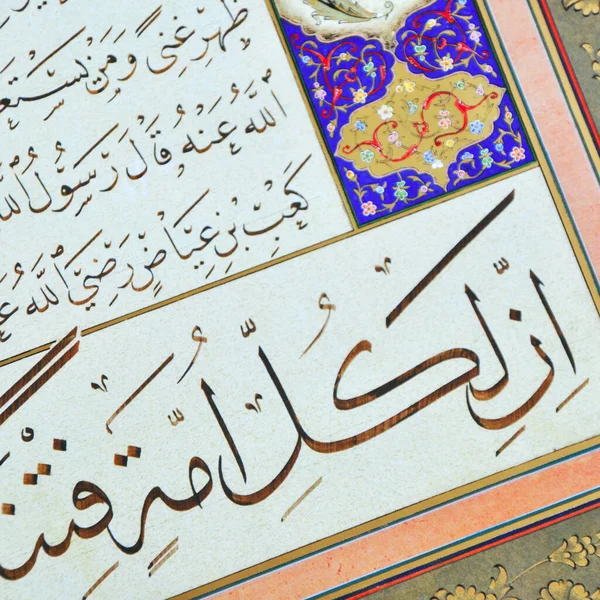 ظَهْرِ غِنًى وَمَنْ يَسْتَعِ
اللّٰهُ عَنْهُ قَالَ رَسُولُ اللّٰ
كَعْبِ بْنِ عِيَاضٍ رَضِيَ اللّٰهُ عَ
اِنَّ لِكُلِّ اُمَّةٍ فِتْنَ